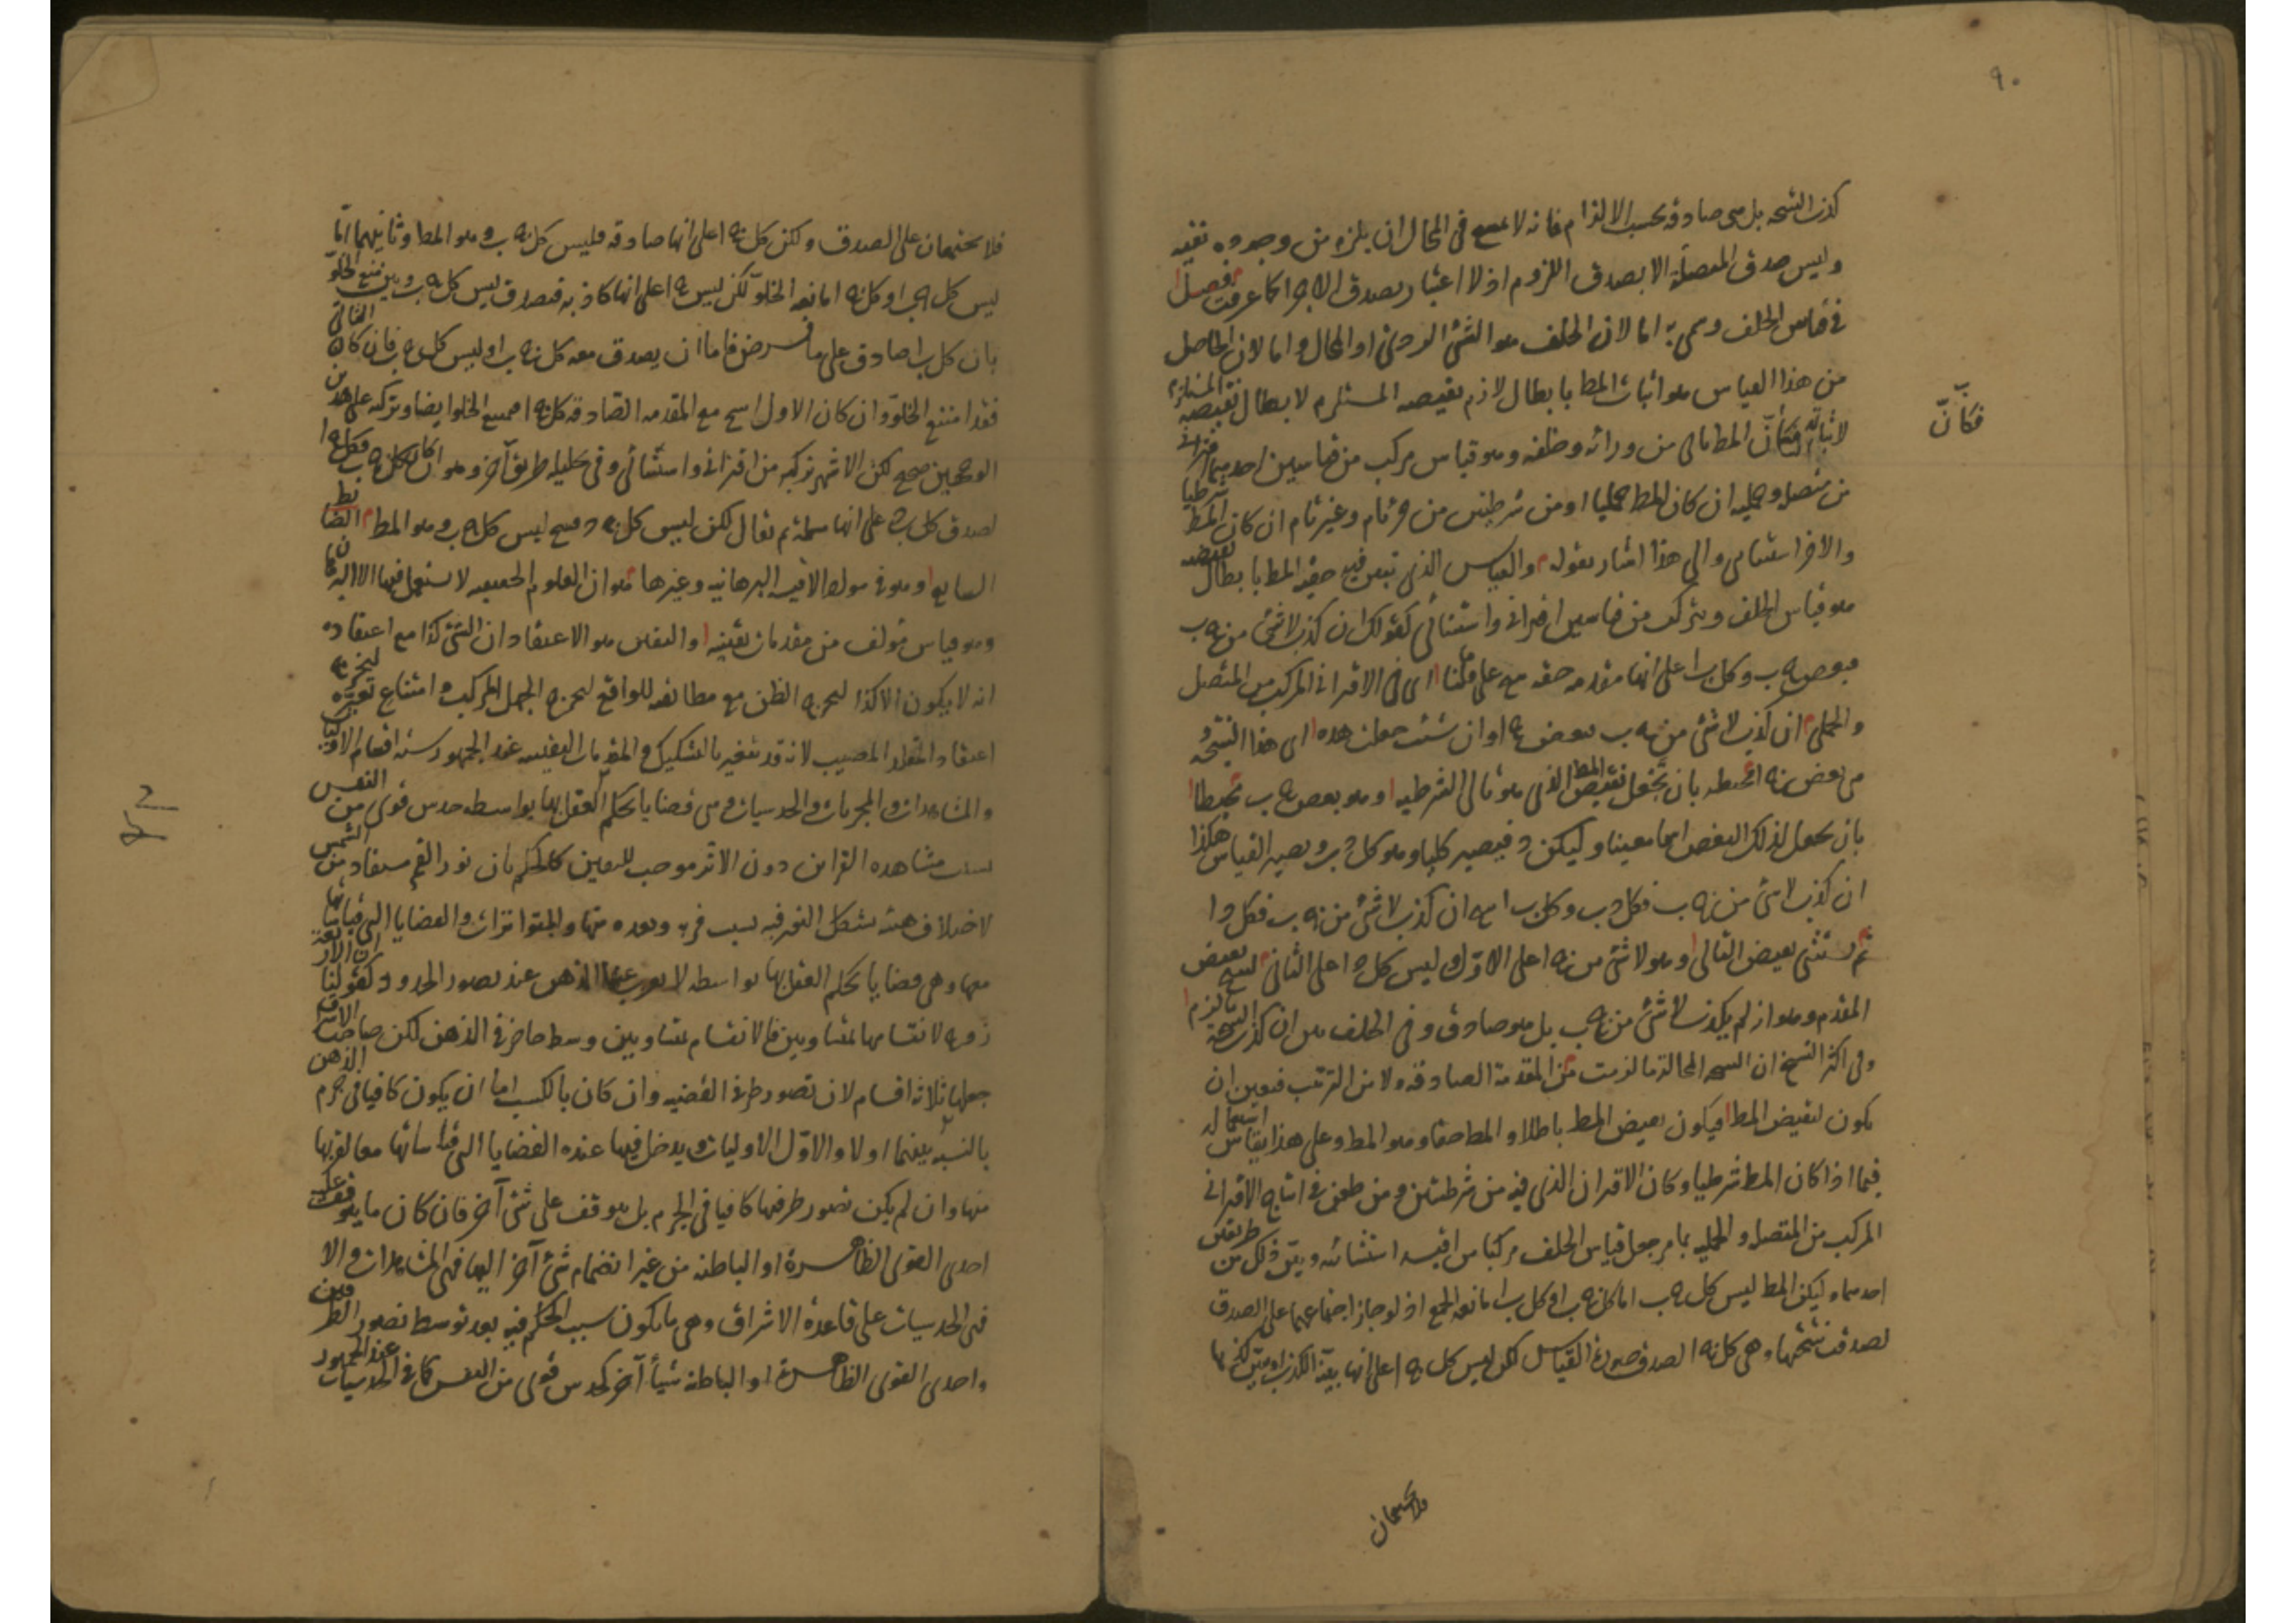 ٩٠
كذب النتيجة بل هى صادقة بحسب الالزام فانه لا يمتنع فى المحال ان يلزم من وجوده نفيه
وليس صدق المتصلة الا بصدق اللزوم اذ لا اعتبار بصدق الاجزا كما عرفت فصل
فى قياس الخلف وسمى به اما لان الخلف هو الشئ الردئ او المحال واما لان الحاصل
من هذا القياس هو اثبات المط بابطال لازم نقيضه المستلزم لابطال نقيضه المستلزم
لاثباته فكأنّ المط ياتى من ورائه وخلفه وهو قياس مركب من قياسين احدهما اقترانى
فكانّ
من متصلة وحمليه ان كان المط حمليا او من شرطيتين من تام وغير تام ان كان المط شرطيا
والاخر استثنائى والى هذا اشار بقوله والقياس الذى تبين فيه حقيه المط بابطال نقيضه
هو قياس الخلف ويتركب من قياسين اقترانى واستثنائى كقولك ان كذب لا شئ من ج ب
فبعض ج ب وكل ب ا على انها مقدمه حقه على ما قلنا اى فى الاقترانى المركب من المتصل
والحملى ان كذب لا شئ من ج ب فبعض ج ا وان شئت جعلت هذه اى هذا النتيجة و
هى بعض ج ا محيطه بان تجعل نقيض المط الذى هو تالى الشرطيه وهو بعض ج ب محيطا
بان يجعل لذلك البعض اسما معينا وليكن د فيصير كليا وهو كل د ب ويصير القياس هكذا
ان كذب لا شئ من ج ب فكل د ب وكل ب ا ينتج ان كذب لا شئ من ج ب فكل د ا
ثم يستثنى نقيض التالى وهو لا شئ من ج ا على الاوّل وليس كل د ا على الثانى لينتج نقيض
المقدم وهو انه لم يكذب لا شئ من ج ب بل هو صادق وفى الخلف يبين ان كذب النتيجة لزم
وفى اكثر النسخ ان النتيجه المحالة ما لزمت من المقدمة الصادقه ولا من الترتيب فتعين ان
يكون لنقيض المط فيكون نقيض المط باطلا والمط حقا وهو المط وعلى هذا يقاس استعماله
فيما اذا كان المط شرطيا وكان الاقتران الذى فيه من شرطيتين ومن طعن فى انتاج الاقترانى
المركب من المتصل والحمليه بما مر جعل قياس الخلف مركبا من اقيسه استثنائيه وبيّن ذلك من طريقين
احدهما وليكن المط ليس كل ج ب اما كل ج ب او كل ب ا مانعه الجمع اذ لو جاز اجتماعهما على الصدق
لصدقت نتيجتهما وهى كل ج ا لصدق صورة القياس لكن ليس كل ج ا على انها بيّنة الكذب او مبيّن كذبها
فلا يجتمعان
فلا يجتمعان على الصدق ولكن كل ج ا على انها صادقه فليس كل ج ب وهو المط وثانيهما امّا
ليس كل ج ب او كل ج ا مانعه الخلوّ لكن ليس ج ا على انها كاذبه فتصدق ليس كل ج ب وبيّن منع الخلوّ
بان كل ب ا صادق على ما فرض فاما ان يصدق معه كل ج ب او ليس كل ج ب فان كان الثانى
فقد امتنع الخلوّ وان كان الاول انتج مع المقدمه الصادقه كل ج ا فيمتنع الخلو ايضا وتركيبه على هذين
الوجهين صحيح لكن الاشهر تركيبه من اقترانى واستثنائى وفى تحليله طريق آخر وهو ان كان كل ج ب فكل ج ا
لصدق كل ب ا على انها مسلمة ثم يقال لكن ليس كل ج ا فينتج ليس كل ج ب وهو المط الضابط
السابع وهو فى مواد الاقيسه البرهانيه وغيرها هو ان العلوم الحقيقيه لا يستعمل فيها الا البرهان
وهو قياس مؤلف من مقدمات يقينيه واليقين هو الاعتقاد ان الشئ كذا مع اعتقاده
انه لا يكون الا كذا ليخرج الظن مع مطابقته للواقع ليخرج الجهل المركب وامتناع تغيره ليخرج
اعتقاد المقلد المصيب لانه قد يتغير بالتشكيك والمقدمات اليقينيه عند الجمهور سته اقسام الاوليات
والمشاهدات والمجربات والحدسيات وهى قضايا يحكم العقل بها بواسطه حدس قوى من النفس
بسبب مشاهده القراين دون الاثر موجب لليقين كالحكم بان نور القمر مستفاد من الشمس
لاختلاف هيئه تشكل النور فيه بسبب قربه وبعده منها والمتواترات والقضايا التى قياساتها
معها وهى قضايا يحكم العقل بها بواسطه لا يعزب عنها الذهن عند تصور الحدود كقولنا ان الاربعة
زوج لانقسامها بمتساويين فالانقسام بمتساويين وسط حاضر فى الذهن لكن صاحب الاشراق
جعلها ثلاثه اقسام لان تصور طرفى القضيه وان كان بالكسب اما ان يكون كافيا فى جزم الذهن
بالنسبه بينهما اولا والاوّل الاوليات ويدخل فيها عنده القضايا التى قياساتها معها لقربها
منها وان لم يكن تصور طرفيها كافيا فى الجزم بل يتوقف على شئ آخر فان كان ما يتوقف عليه
احدى القوى الظاهرة او الباطنه من غير انضمام شئ آخر اليها فهى المشاهدات والا
فهى الحدسيات على قاعدة الاشراق وهى ما يكون سبب الحكم فيه بعد توسط تصور الطرفين
واحدى القوى الظاهرة او الباطنه شيأ آخر كحدس قوى من النفس كما فى الحدسيات عند الجمهور